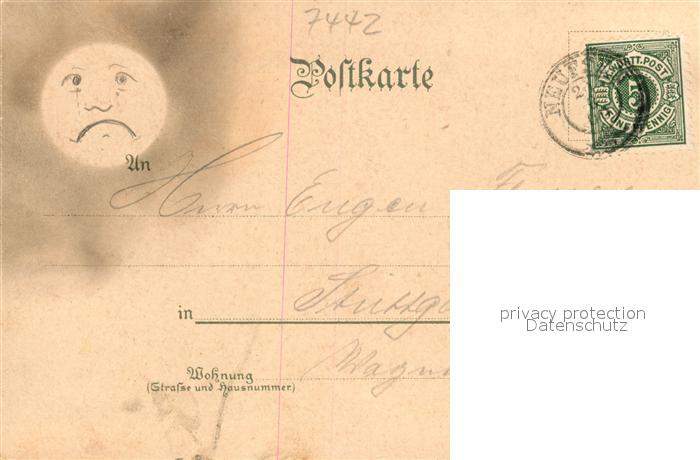 7442
Postkarte
K. WÜRTT. POST
5
FÜNF PFENNIG
An
Herrn Eugen
in Stuttga
Wohnung
(Strasse und Hausnummer)
Wagn
privacy protection
Datenschutz